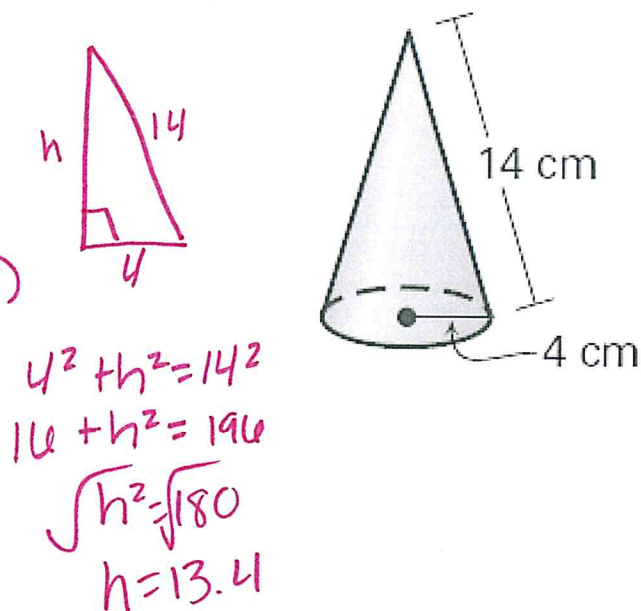 h
14
4
)
4² + h² = 14²
16 + h² = 196
√h² = √180
h = 13.4
14 cm
4 cm